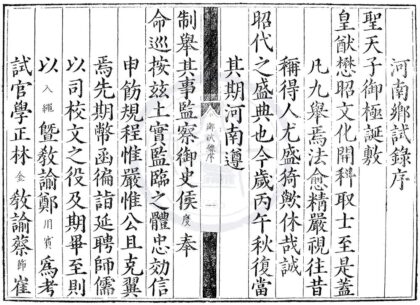 河南鄉試錄序
聖天子御極誕敷
皇猷懋昭文化開科取士至是蓋
凡九舉焉法愈精嚴視往昔
稱得人尤盛猗歟休哉誠
昭代之盛典也今歲丙午秋復當
其期河南遵
鄉試錄序
一
制舉其事監察御史侯度奉
命巡按茲土實監臨之體忠効信
申飭規程惟嚴惟公且克翼
焉先期幣函徧詣延聘師儒
以司校文之役及期畢至則
以入繩暨教諭鄭用賓為考
試官學正林金教諭蔡師崔